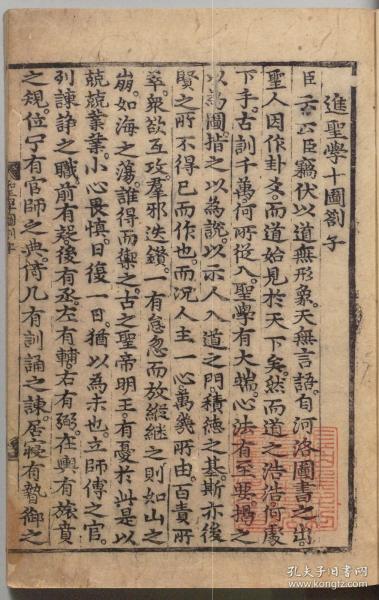 進聖學十圖劄子
臣 言臣竊伏以道無形象。天無言語。自河洛圖書之出。
聖人因作卦爻。而道始見於天下矣。然而道之浩浩。何處
下手。古訓千萬。何所從入。聖學有大端。心法有至要。揭之
以爲圖。指之以爲說。以示人入道之門。積德之基。斯亦後
賢之所不得已而作也。而況人主一心。萬幾所由。百責所
萃。衆欲互攻。羣邪迭鑽。一有怠忽而放縱繼之。則如山之
崩。如海之蕩。誰得而禦之。古之聖帝明王。有憂於此。是以
兢兢業業。小心畏愼。日復一日。猶以爲未也。立師傅之官。
列諫諍之職。前有疑。後有丞。左有輔。右有弼。在輿有旅賁
之規。位宁有官師之典。倚几有訓誦之諫。居寢有暬御之
孔夫子旧书网